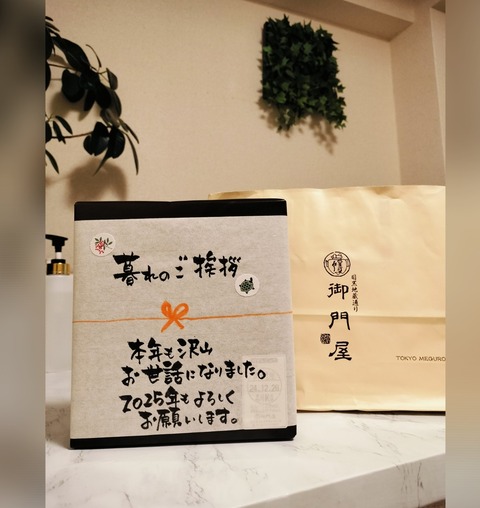 暮れのご挨拶
本年も沢山
お世話になりました。
2025年もよろしく
お願いします。
24.12.26
目黒地蔵通り
御門屋
TOKYO MEGURO